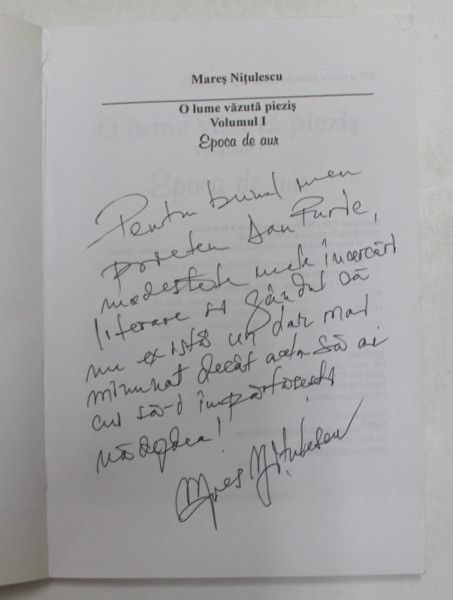 Mareș Nițulescu
O lume văzută pieziș
Volumul I
Epoca de aur
Pentru bunul meu
prieten Dan
modestele mele încercări
literare și gândul că
nu există un dar mai
minunat decât acela să ai
cui să-i împărtășești
nădejdea!
Mareș Nițulescu